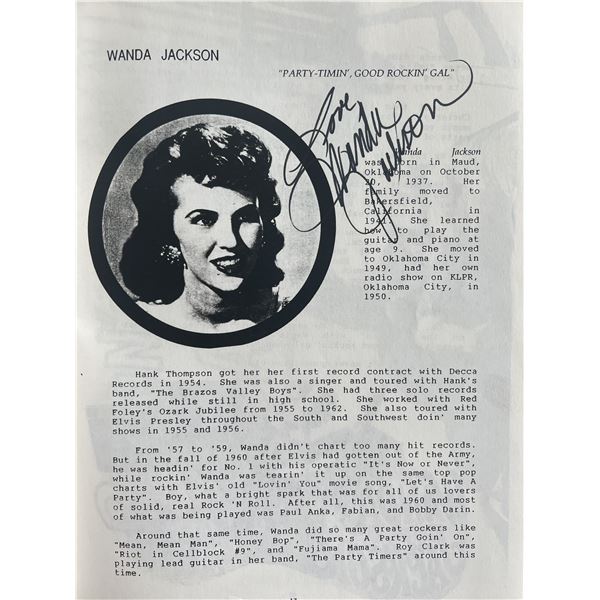 WANDA JACKSON
"PARTY-TIMIN', GOOD ROCKIN' GAL"
Love
Wanda
Jackson
Wanda Jackson
was born in Maud,
Oklahoma on October
20, 1937. Her
family moved to
Bakersfield,
California in
1941. She learned
how to play the
guitar and piano at
age 9. She moved
to Oklahoma City in
1949, had her own
radio show on KLPR,
Oklahoma City, in
1950.
Hank Thompson got her her first record contract with Decca
Records in 1954. She was also a singer and toured with Hank's
band, "The Brazos Valley Boys". She had three solo records
released while still in high school. She worked with Red
Foley's Ozark Jubilee from 1955 to 1962. She also toured with
Elvis Presley throughout the South and Southwest doin' many
shows in 1955 and 1956.
From '57 to '59, Wanda didn't chart too many hit records.
But in the fall of 1960 after Elvis had gotten out of the Army,
he was headin' for No. 1 with his operatic "It's Now or Never",
while rockin' Wanda was tearin' it up on the same top pop
charts with Elvis' old "Lovin' You" movie song, "Let's Have A
Party". Boy, what a bright spark that was for all of us lovers
of solid, real Rock 'N Roll. After all, this was 1960 and most
of what was being played was Paul Anka, Fabian, and Bobby Darin.
Around that same time, Wanda did so many great rockers like
"Mean, Mean Man", "Honey Bop", "There's A Party Goin' On",
"Riot in Cellblock #9", and "Fujiama Mama". Roy Clark was
playing lead guitar in her band, "The Party Timers" around this
time.